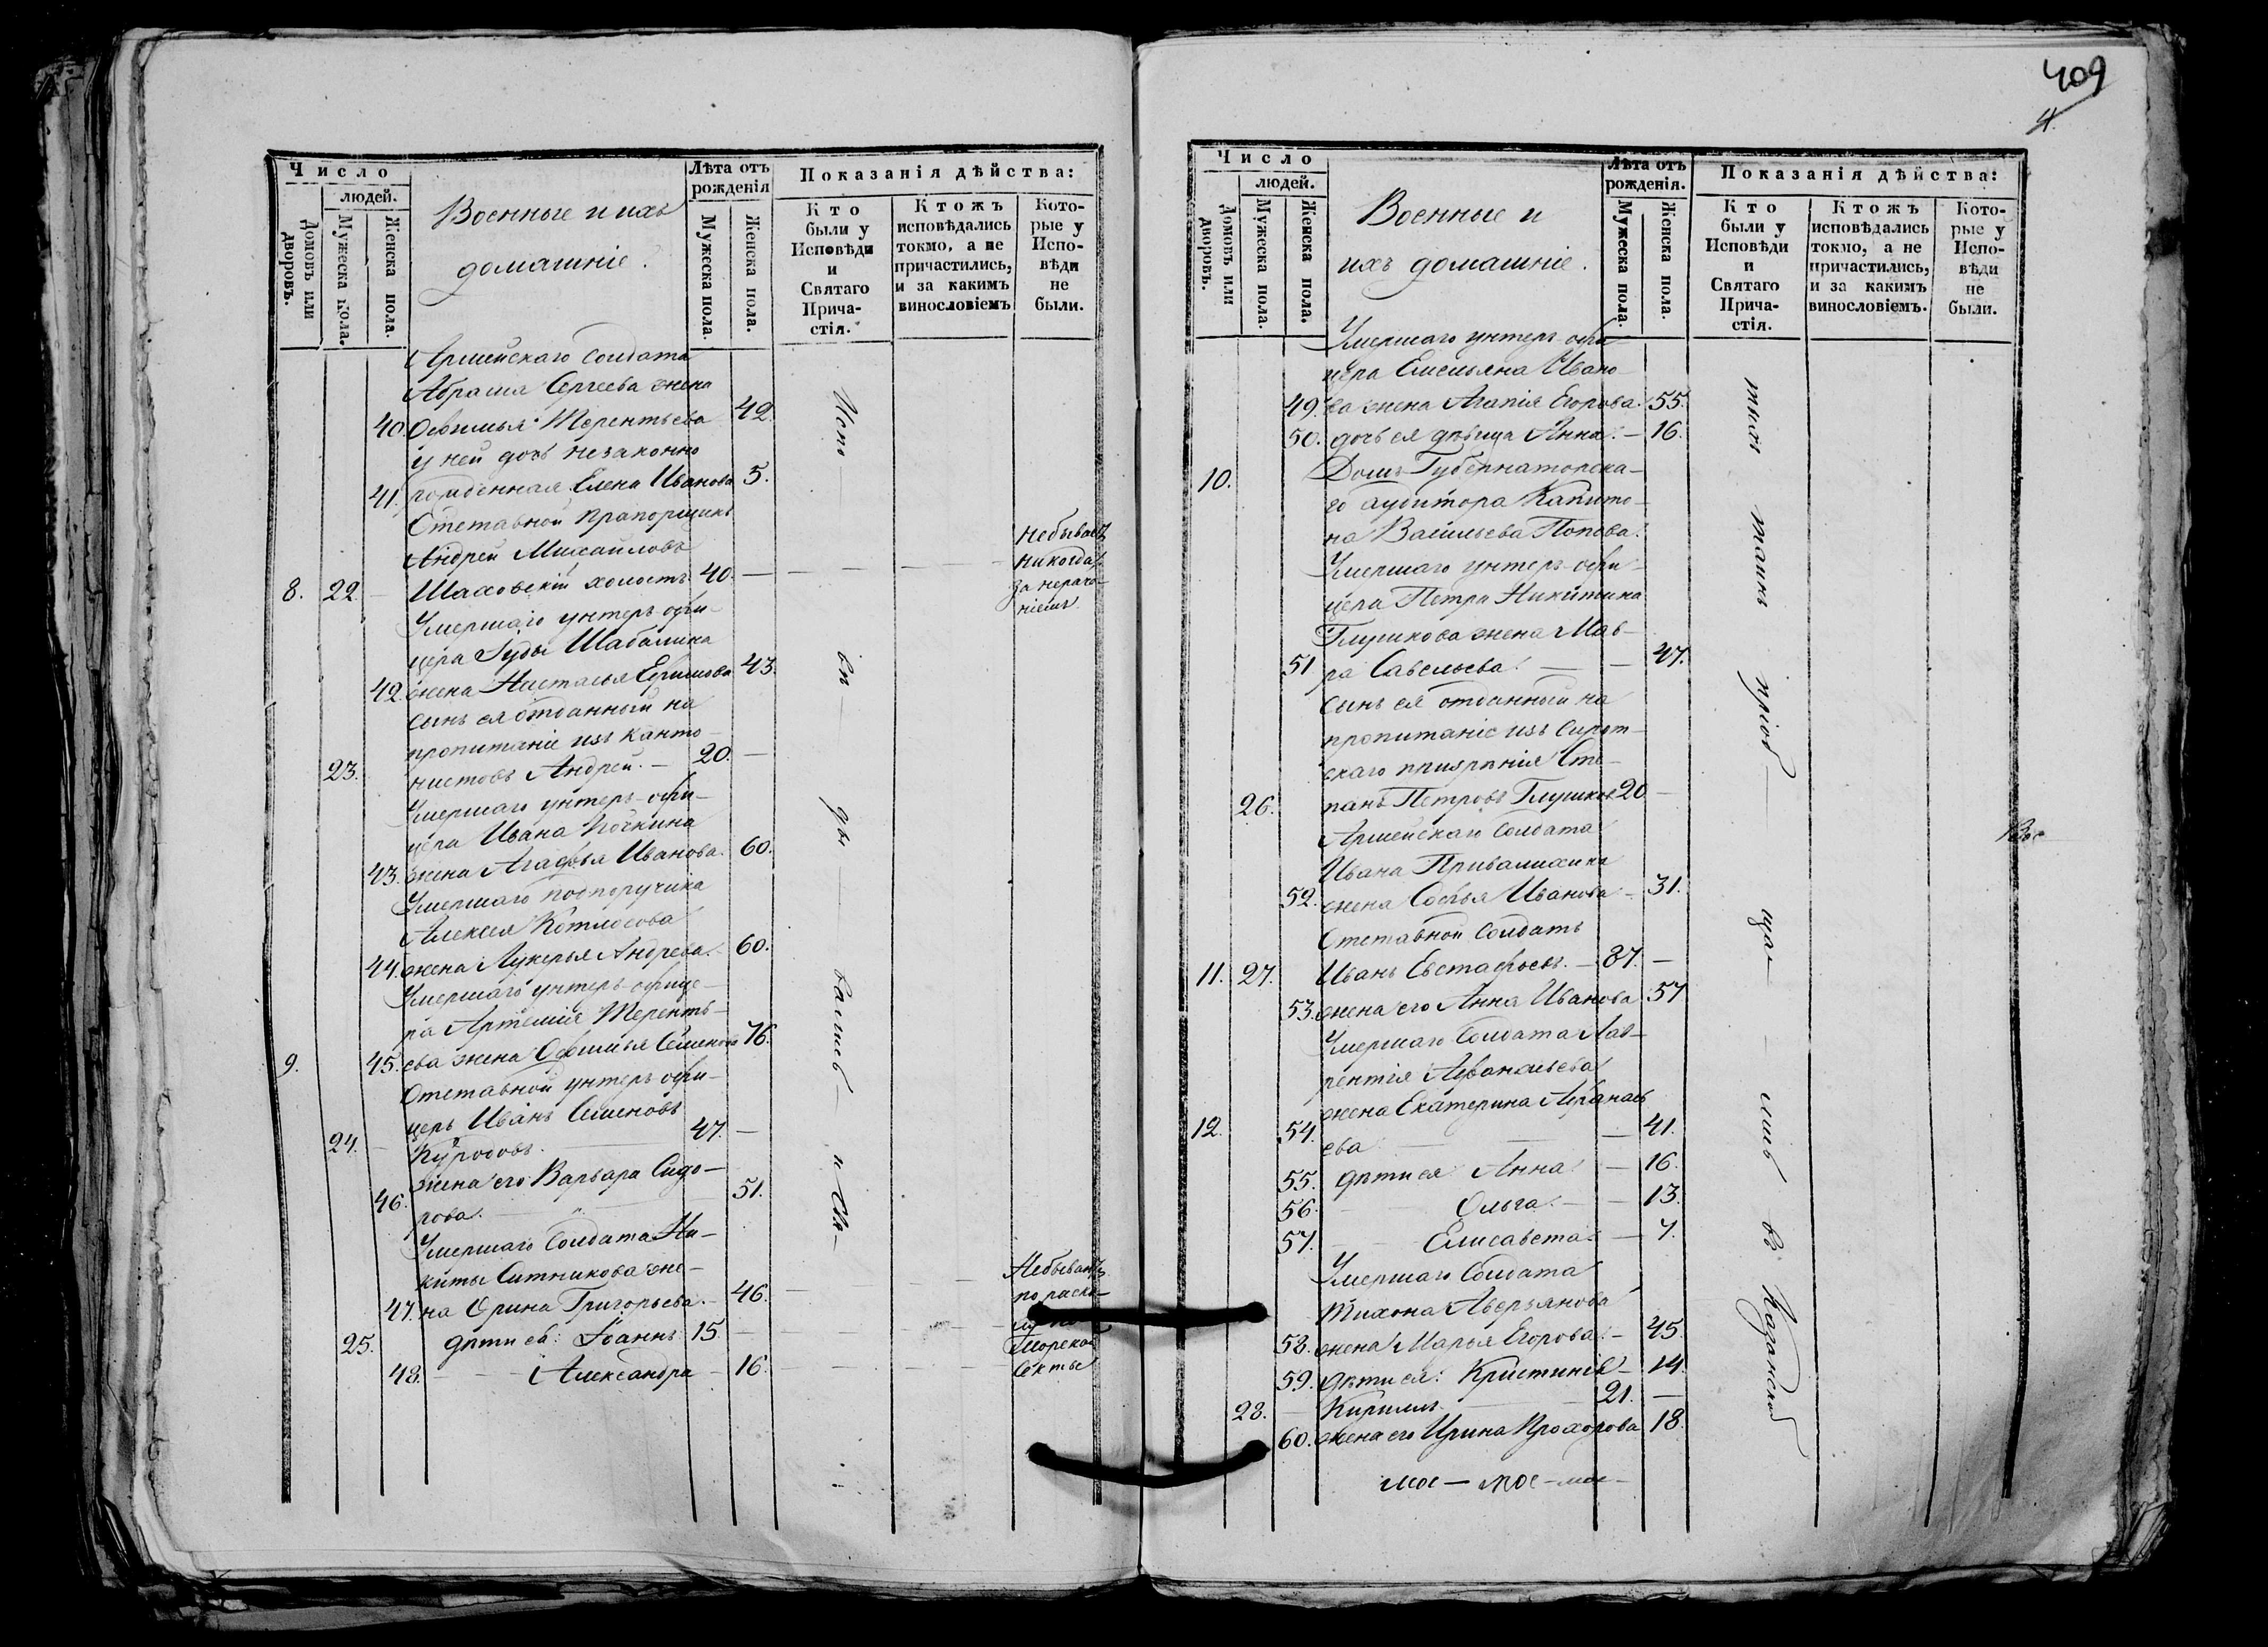 Число
людей.
Домовъ или дворовъ.
Мужеска пола.
Женска пола.
Военные и ихъ
домашніе.
Лѣта отъ
рожденія
Мужеска пола.
Женска пола.
Показанія дѣйства:
Кто
были у
Исповѣди
и
Святаго
Прича-
стія.
Ктожъ
исповѣдались
токмо, а не
причастились,
и за какимъ
винословіемъ
Кото-
рые у
Испо-
вѣди
не
были.
Армейскаго солдата
Абрама Сергеева жена
40. Офимья Терентьева 42.
у ней дочь незаконно
41. рожденная Елена Иванова 5.
Отставной прапорщикъ
Андрей Михайловъ
8. 22. — Шаховскій холостъ 40. —
Небывает
никогда
за нераче-
ніемъ.
Умершаго унтеръ-офи-
цера Іуды Шабалина
42. жена Настасья Ефимова 43.
сынъ ея отданный на
пропитаніе изъ канто-
23. нистовъ Андрей. — 20. —
Умершаго унтеръ-офи-
цера Ивана Кочкина
43. жена Агафья Иванова. 60.
Умершаго подпоручика
Алексея Котлосова
44. жена Лукерья Андреева. 60.
Умершаго унтеръ-офице-
ра Артемія Теренть-
9. 45. ева жена Офимья Семенова 76.
Отставной унтеръ офи-
церъ Иванъ Семеновъ
24. — Куродовъ. 47. —
жена его Варвара Сидо-
46. рова. 51.
Умершаго Солдата Ни-
киты Ситникова же-
47. на Орина Григорьева. 46.
25. дѣти ея: Іоаннъ 15. —
48. Александра — 16.
Небывают
по раско-
Поморской
секты
Испо — вѣ — ды — вались — и Свя —
409
4.
Число
людей.
Домовъ или дворовъ.
Мужеска пола.
Женска пола.
Военные и
ихъ домашніе.
Лѣта отъ
рожденія.
Мужеска пола.
Женска пола.
Показанія дѣйства:
Кто
были у
Исповѣди
и
Святаго
Прича-
стія.
Ктожъ
исповѣдались
токмо, а не
причастились,
и за какимъ
винословіемъ.
Кото-
рые у
Испо-
вѣди
не
были.
Умершаго унтеръ-офи-
цера Емельяна Ивано-
49. ва жена Агапія Егорова. 55.
50. дочь ея дѣвица Анна. — 16.
10. Домъ Губернаторска-
го аудитора Капито-
на Васильева Попова.
Умершаго унтеръ-офи-
цера Петра Никитина
Глушкова жена Мав-
51 ра Савельева. — — 47.
сынъ ея отданный на
пропитаніе изъ Сирот-
скаго призрѣнія Сте-
26. панъ Петровъ Глушков 20 —
Армейскаго солдата
Ивана Привалихина
52. жена Софья Иванова — 31.
Отставной солдатъ
11. 27. Иванъ Евстафьевъ. — 87. —
53. жена его Анна Иванова 57
Умершаго Солдата Лав-
рентія Афанасьева
жена Екатерина Афанась
12. 54. ева — 41.
55. дѣти ея Анна — 16.
56. Ольга. — 13.
57. Елисавета — 7.
Умершаго Солдата
Тихона Аверьянова
58. жена Марья Егорова. — 45.
59. дѣти ея: Кристинія — 14.
28. Кириллъ 21. —
60. жена его Ирина Прохорова 18.
тыхъ таинъ пріоб — ща — лись въ Казанской